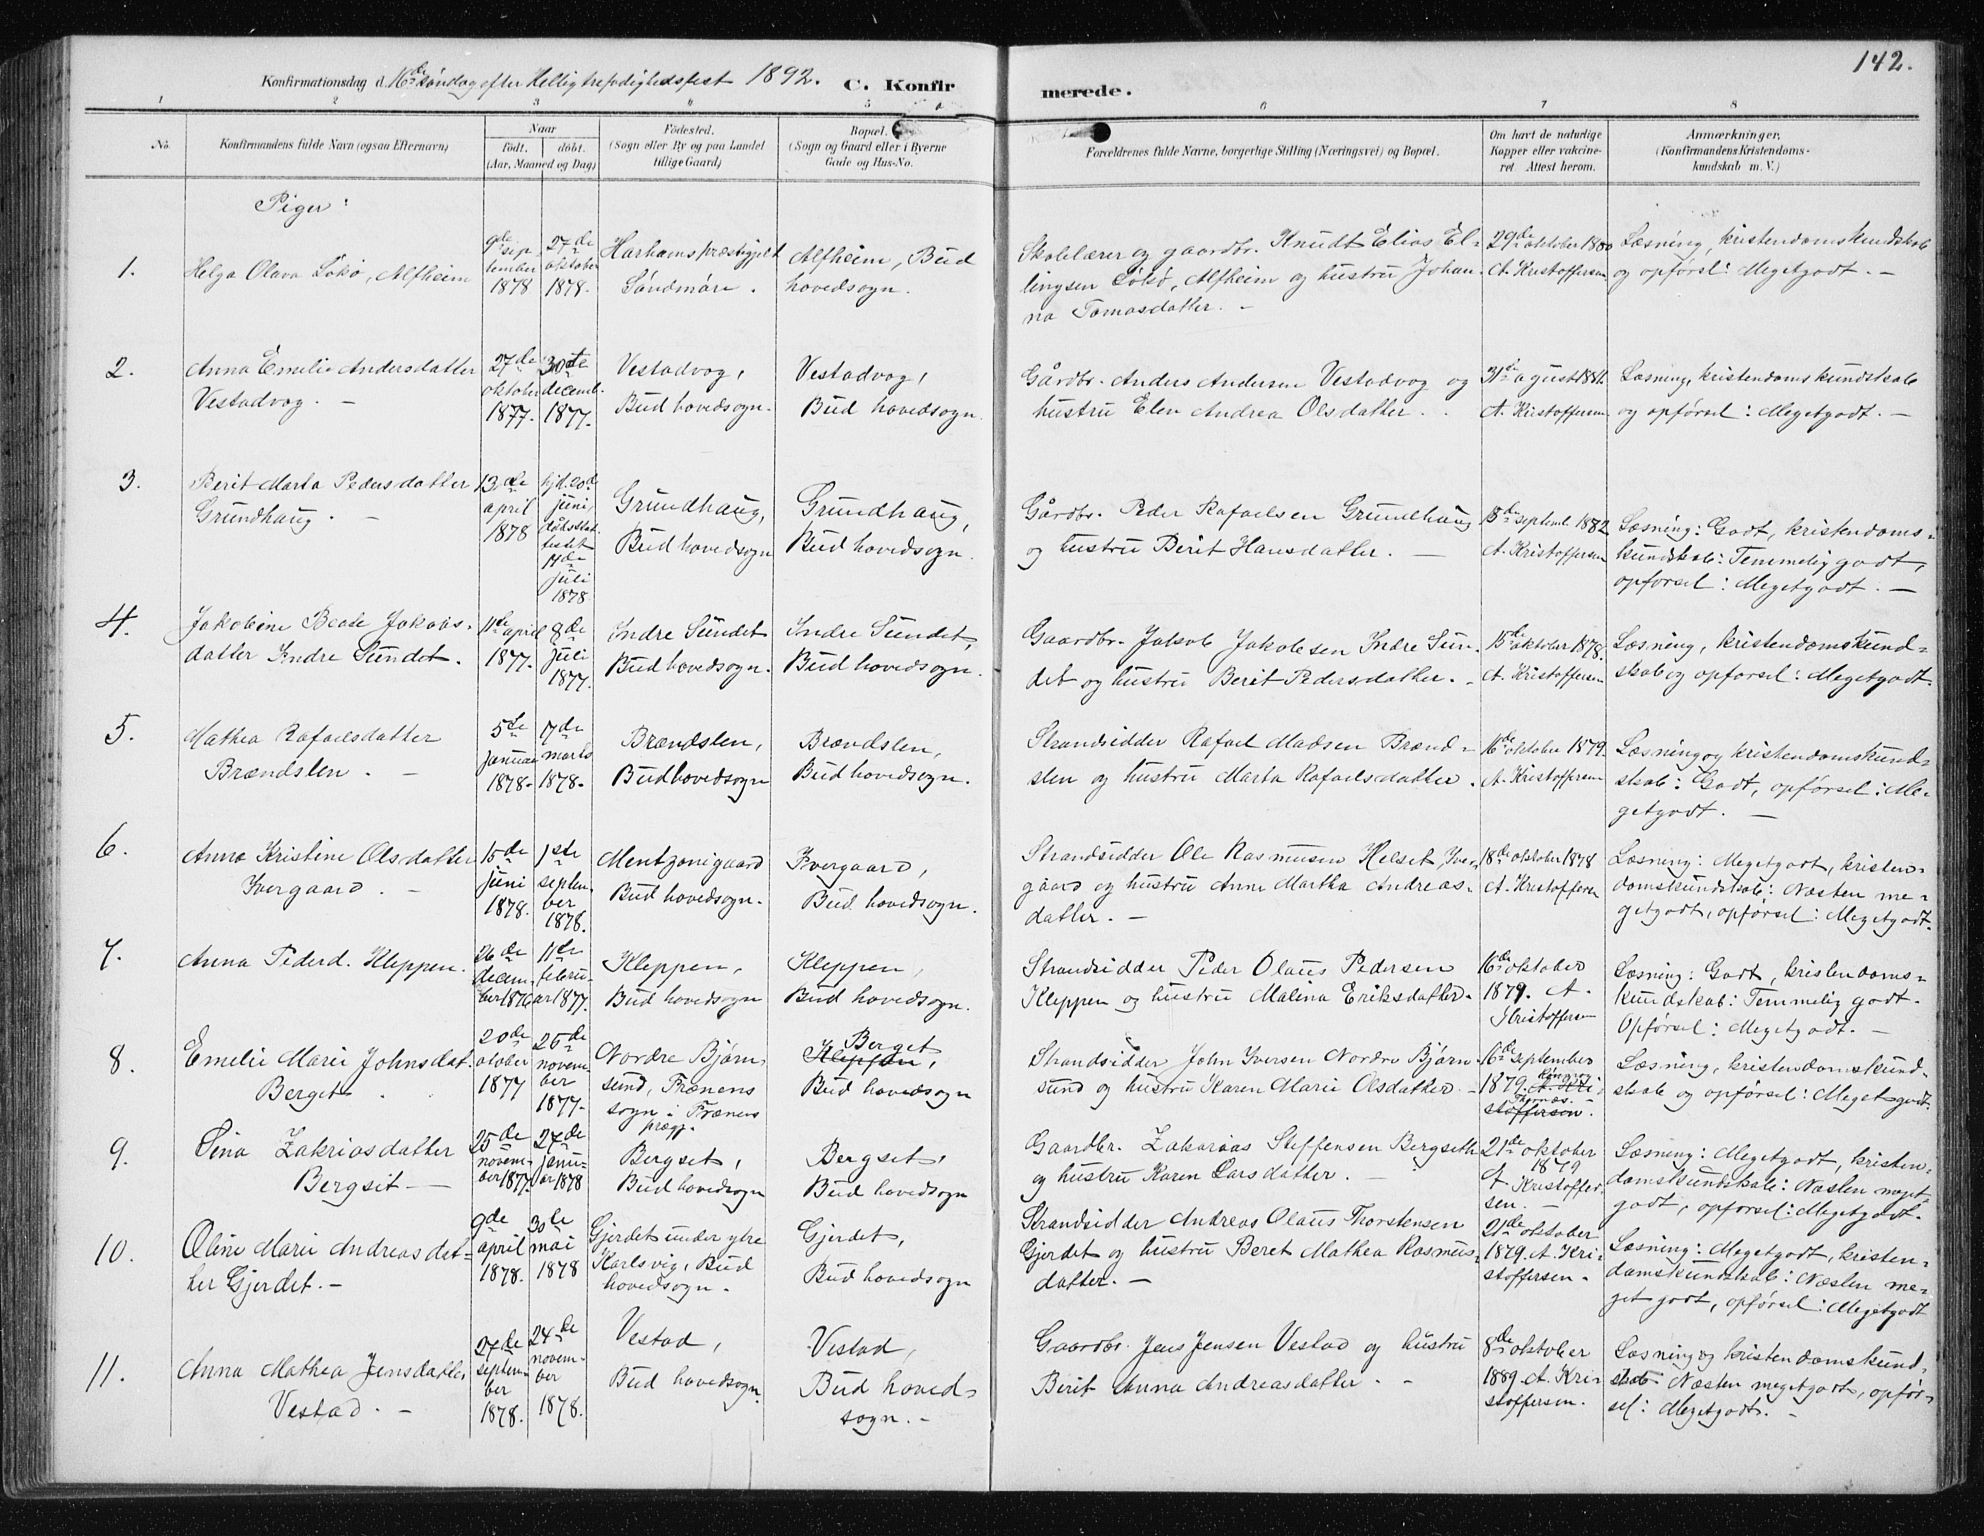 142.
Konfirmationsdag d. 16de søndag efter Helligtrefoldighedsfest 1892. C. Konfirmerede.
1 2 3 4 5 6 7 8
No. Konfirmandens fulde Navn (ogsaa Efternavn) Naar födt. döbt. (Aar, Maaned og Dag) Födested. (Sogn eller By og paa Landet tillige Gaard) Bopæl. (Sogn og Gaard eller i Byerne Gade og Hus-No. Forældrenes fulde Navne, borgerlige Stilling (Næringsvei) og Bopæl. Om havt de naturlige Kopper eller vaccineret. Attest herom. Anmærkninger, (Konfirmandens Kristendomskundskab m. V.)
Piger:
1. Helga Olava Løkø, Alfheim
9de september 1878
27de oktober 1878.
Harhams præstegjeld Søndmøre.
Alfheim, Bud hovedsogn.
Skolelærer og gaardbr. Knudt Elias El-
lingsen Løkø, Alfheim og hustru Johan-
na Tomasdatter. -
29de oktober 1880
A. Kristoffersen
Læsning, kristendomskundskab
og opførsel: Megetgodt. -
2. Anna Emilie Andersdatter
Vestadvog. -
27de oktober 1877.
30te decemb. 1877.
Vestadvog,
Bud hovedsogn.
Vestadvog,
Bud hovedsogn.
Gårdbr. Anders Andersen Vestadvog og
hustru Elen Andrea Olsdatter.
31te agust 1881.
A. Kristoffersen
Læsning, kristendomskundskab
og opførsel: Megetgodt. -
3. Berit Marta Pedersdatter
Grundhaug. -
13de april 1878
hjd. 20de juni, stadfestet 14de juli 1878
Grundhaug,
Bud hovedsogn
Grundhaug,
Bud hovedsogn.
Gårdbr. Peder Rafaelsen Grundhaug
og hustru Berit Hansdatter. -
18de septemb. 1882
A. Kristoffersen
Læsning: Godt, kristendoms-
kundskab: Temmelig godt,
opførsel: Megetgodt. -
4. Jakobine Beate Jakobs-
datter Indre Sundet.
11te april 1877.
8de juli 1877.
Indre Sundet
Bud hovedsogn.
Indre Sundet,
Bud hovedsogn.
Gaardbr. Jakob Jakobsen Indre Sun-
det og hustru Berit Pedersdatter. -
15de oktober 1878.
A. Kristoffersen
Læsning, kristendomskund-
skab og opførsel: Megetgodt.
5. Mathea Rafaelsdatter
Brændslen. -
5te januar 1878.
17de marts 1878.
Brændslen,
Bud hovedsogn
Brændslen,
Bud hovedsogn.
Strandsidder Rafael Madsen Brænd-
slen og hustru Marta Rafaelsdatter.
16de oktober 1879.
A. Kristoffersen
Læsning og kristendomskund-
skab: Godt, opførsel: Me-
getgodt. -
6. Anna Kristine Olsdatter
Ivergaard. -
15de juni 1878.
1ste september 1878.
Mentzonigaard
Bud hovedsogn.
Ivergaard,
Bud hovedsogn.
Strandsidder Ole Rasmusen Helset, Iver-
gaard og hustru Anne Martha Andreas-
datter. -
18de oktober 1878
A. Kristoffersen
Læsning: Megetgodt, kristen-
domskundskab: Næsten me-
getgodt, opførsel: Megetgodt.
7. Anna Pederd. Kleppen.
26de december 1876
11te februar 1877.
Kleppen,
Bud hovedsogn
Kleppen,
Bud hovedsogn.
Strandsidder Peder Olaus Pedersen
Kleppen og hustru Malina Eriksdatter.
16de oktober
1879. A.
Kristoffersen
Læsning: Godt, kristendoms-
kundskab: Temmelig godt.
Opførsel: Megetgodt. -
8. Emelie Marie Johnsdat.
Berget
20de oktober 1877
25de november 1877.
Nordre Bjørn-
sund, Frænens
sogn i Frænens
prægj.
Berget
Kleppen,
Bud hovedsogn
Strandsidder John Iversen Nordre Bjørn
sund og hustru Karen Marie Olsdatter. -
16de september
1879. A. Kri-
stoffersen.
Læsning, kristendomskund-
skab og opførsel: Megetgodt.
9. Sina Zakriasdatter
Bergsit -
25de november 1877.
27de januar 1878
Bergset,
Bud hovedsogn
Bergset,
Bud hovedsogn
Gaardbr. Zakarias Steffensen Bergseth
og hustru Karen Larsdatter. -
21de oktober
1879
A. Kristoffer-
sen. -
Læsning: Megetgodt, kristen-
domskundskab: Næsten meget-
godt, opførsel: Megetgodt.
10. Oline Marie Andreasdat-
ter Gjerdet. -
9de april 1878.
30te mai 1878
Gjerdet under ytre
Karlsvig, Bud
hovedsogn.
Gjerdet,
Bud hovedsogn
Strandsidder Andreas Olaus Thorstensen
Gjerdet og hustru Beret Mathea Rasmus-
datter. -
21de oktober
1879. A. Kri-
stoffersen.
Læsning: Megetgodt, kristen-
domskundskab: Næsten me-
get godt, opførsel: Megetgodt
11. Anna Mathea Jensdatter
Vestad. -
27de september 1878.
24de november 1878.
Vestad,
Bud hovedsogn.
Vestad,
Bud hoved-
sogn. -
Gaardbr. Jens Jensen Vestad og hustru
Berit Anna Andreasdatter. -
8de oktober
1889. A. Kri-
stoffersen.
Læsning og kristendomskund-
skab: Næsten megetgodt, opfør-
sel: Megetgodt. -